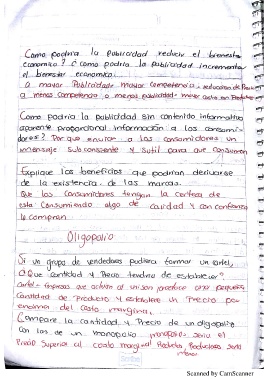 Como podria la publicidad reducir el bienestar
economico? ¿ como podria la publicidad incrementar
el bienestar economico.
a mayor Publicidad mayor competencia = reduccion de
a menos competencia o menos publicidad = mayor costo en Productos
Como podria la publicidad sin contenido informativo
aparente proporcional información a los consumi-
dores? Por que envian a los consumidores un
mensaje Subconsiente y Sutil para que consuman
Explique los beneficios que podrian derivarse
de la existencia de las marcas.
Que los Consumidores tengan la certeza de
esta Consumiendo algo de calidad y con confianza
lo compran.
Oligopolio
Si un grupo de vendedores pudiera formar un cartel,
¿Que cantidad y Precio tendria de establecer?
Cartel = Empresas que actuan al unison produce
Cantidad de Producto y establece un Precio por
encima del costo marginal.
Compare la cantidad y Precio de un oligopolio
con los de un monopolio
Precio Superior al costo marginal Productos Productores
Scanned by CamScanner